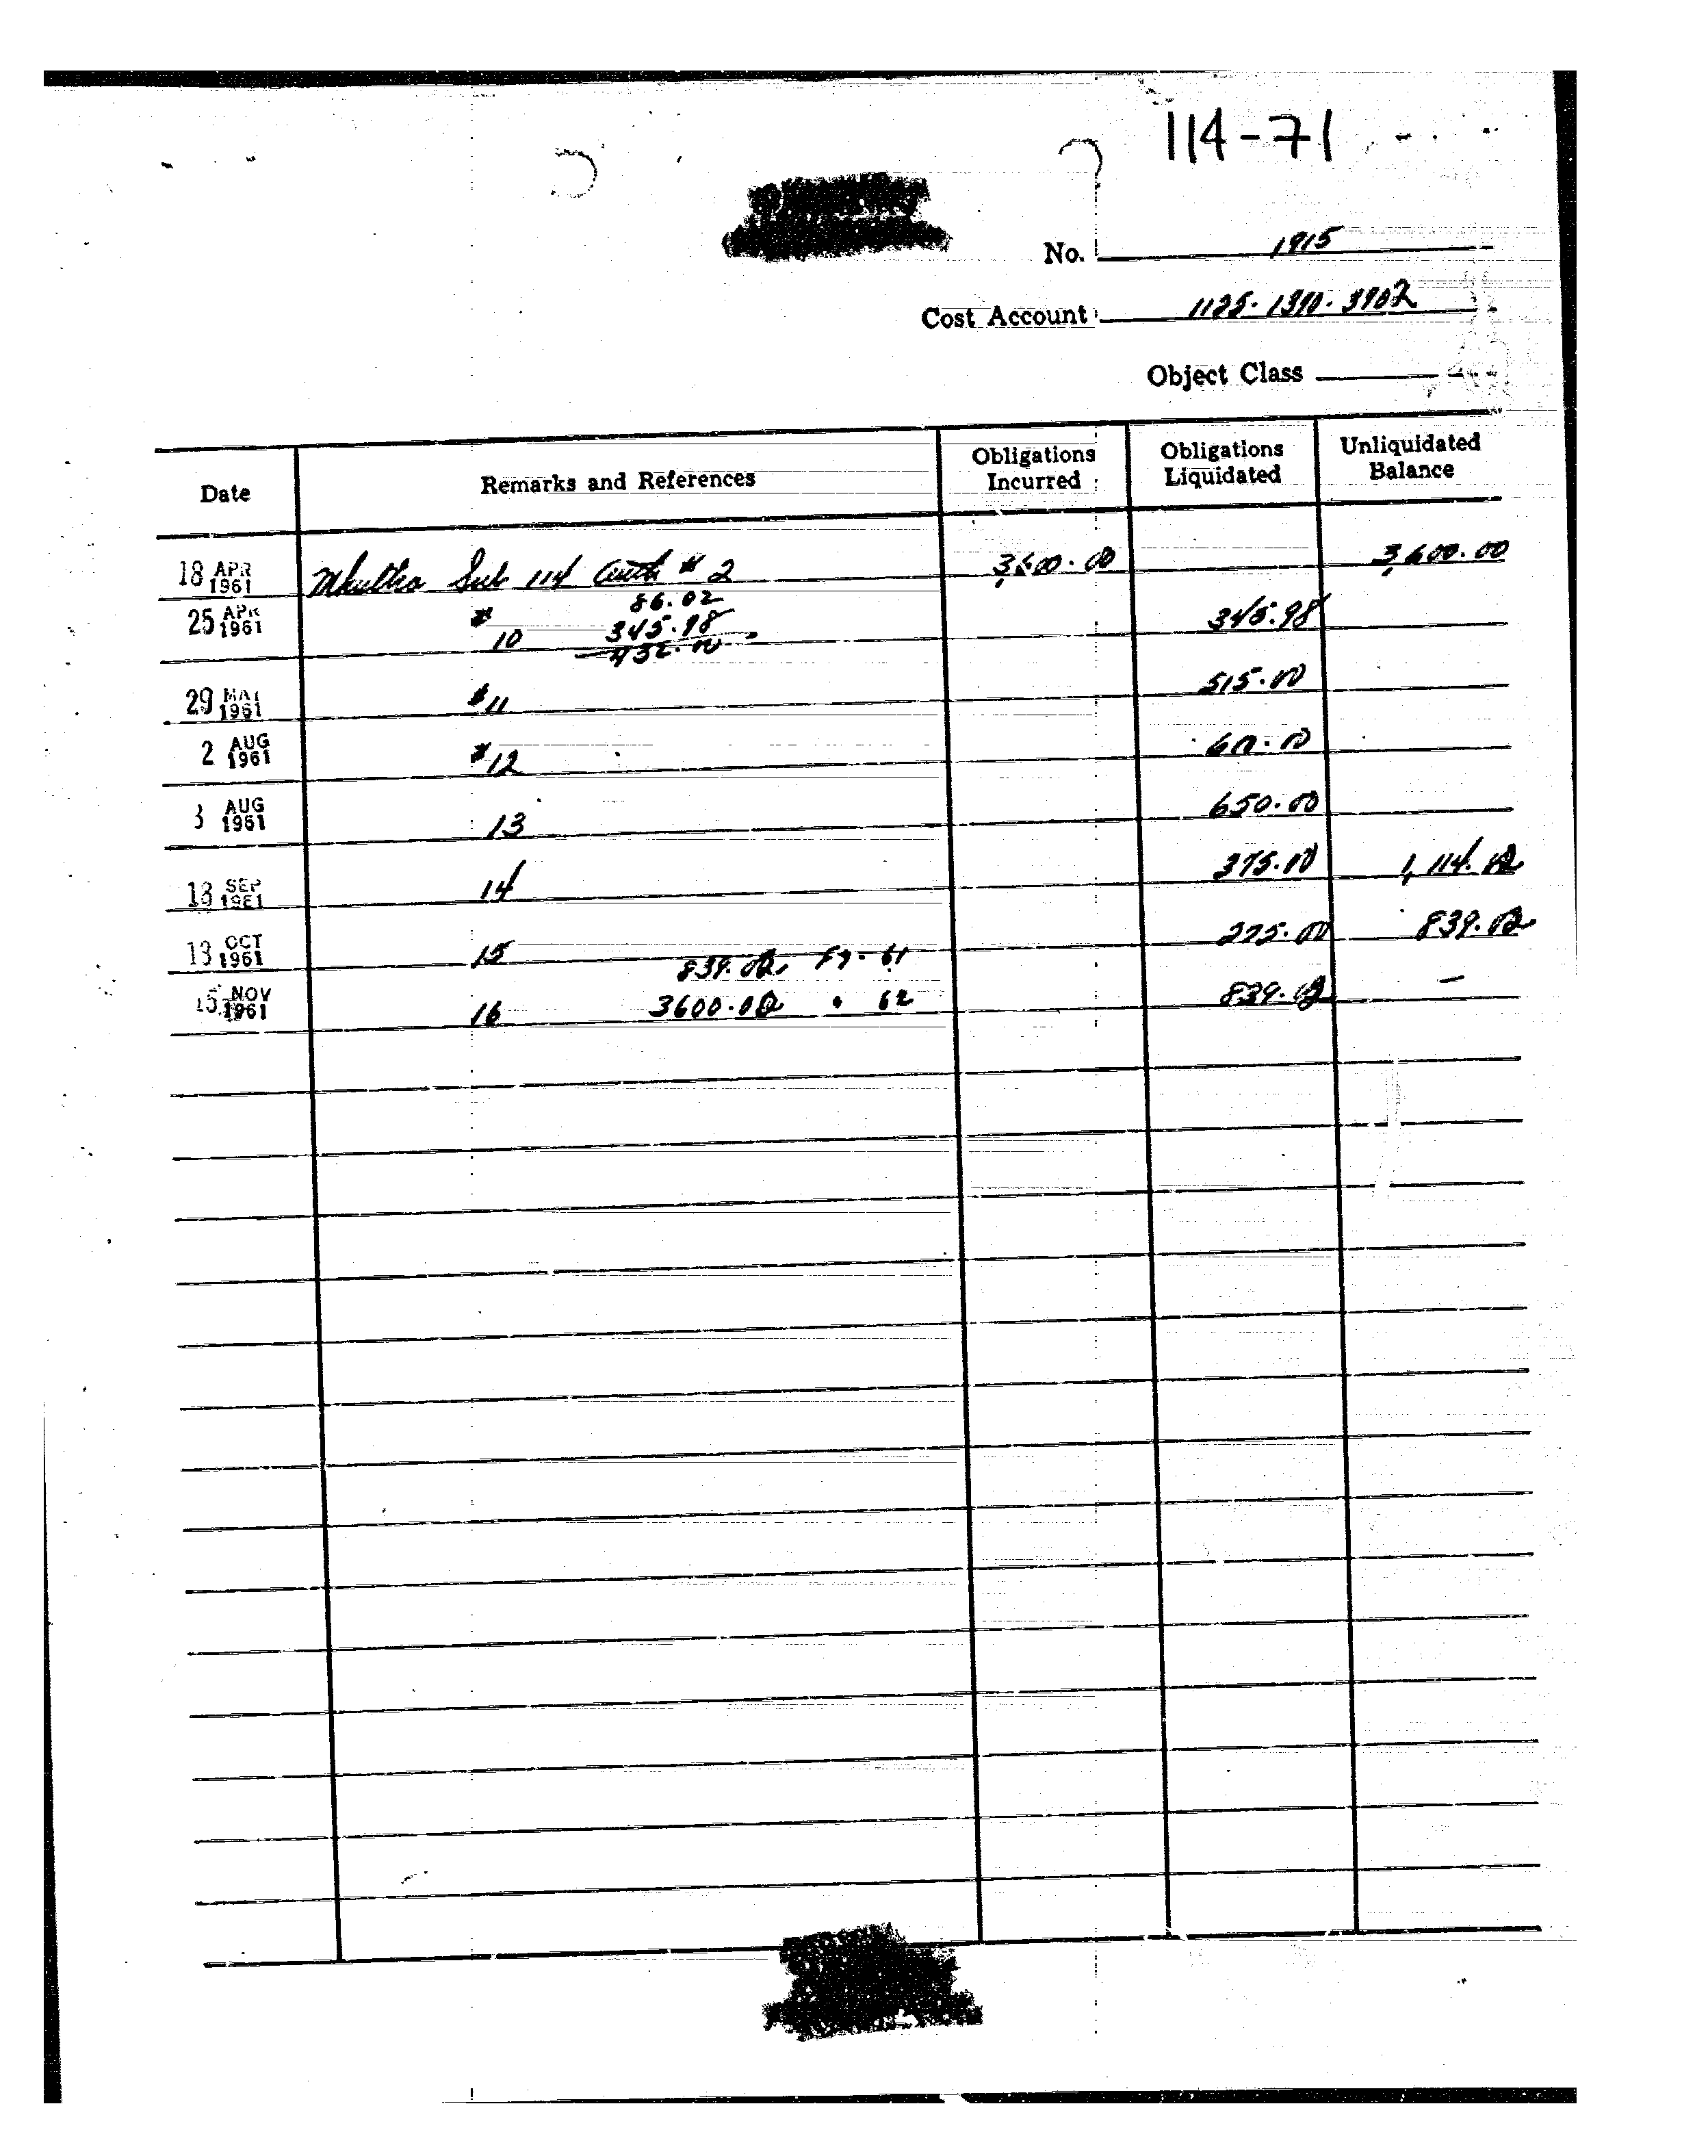 114-71
No. 1915
Cost Account 1125.1390.3902
Object Class
Date Remarks and References Obligations Incurred Obligations Liquidated Unliquidated Balance
18 APR 1961 Mkultra Sub 114 Auth # 2 3,600.00 3,600.00
86.02
25 APR 1961 # 10 345.98 345.98
432.00
29 MAY 1961 #11 515.00
2 AUG 1961 #12 600.00
3 AUG 1961 13 650.00
18 SEP 1961 14 375.00 1,114.02
13 OCT 1961 15 275.00 839.02
839.02, Fy. 61
15 NOV 1961 16 3600.00 " 62 839.02 —